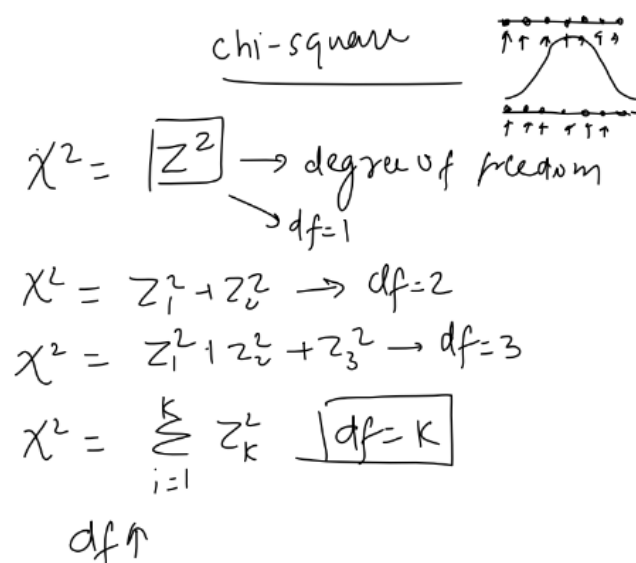 chi-square
χ² = Z² → degree of freedom
df=1
χ² = Z₁² + Z₂² → df=2
χ² = Z₁² + Z₂² + Z₃² → df=3
χ² = ∑ᵢ₌₁ᴷ Z_K² df=K
df↑